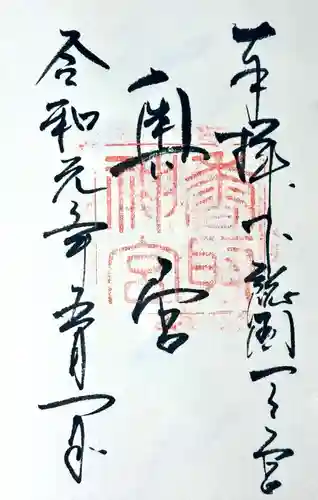 奉拝 下総国一之宮
奥宮
令和元年五月一日
香取神宮